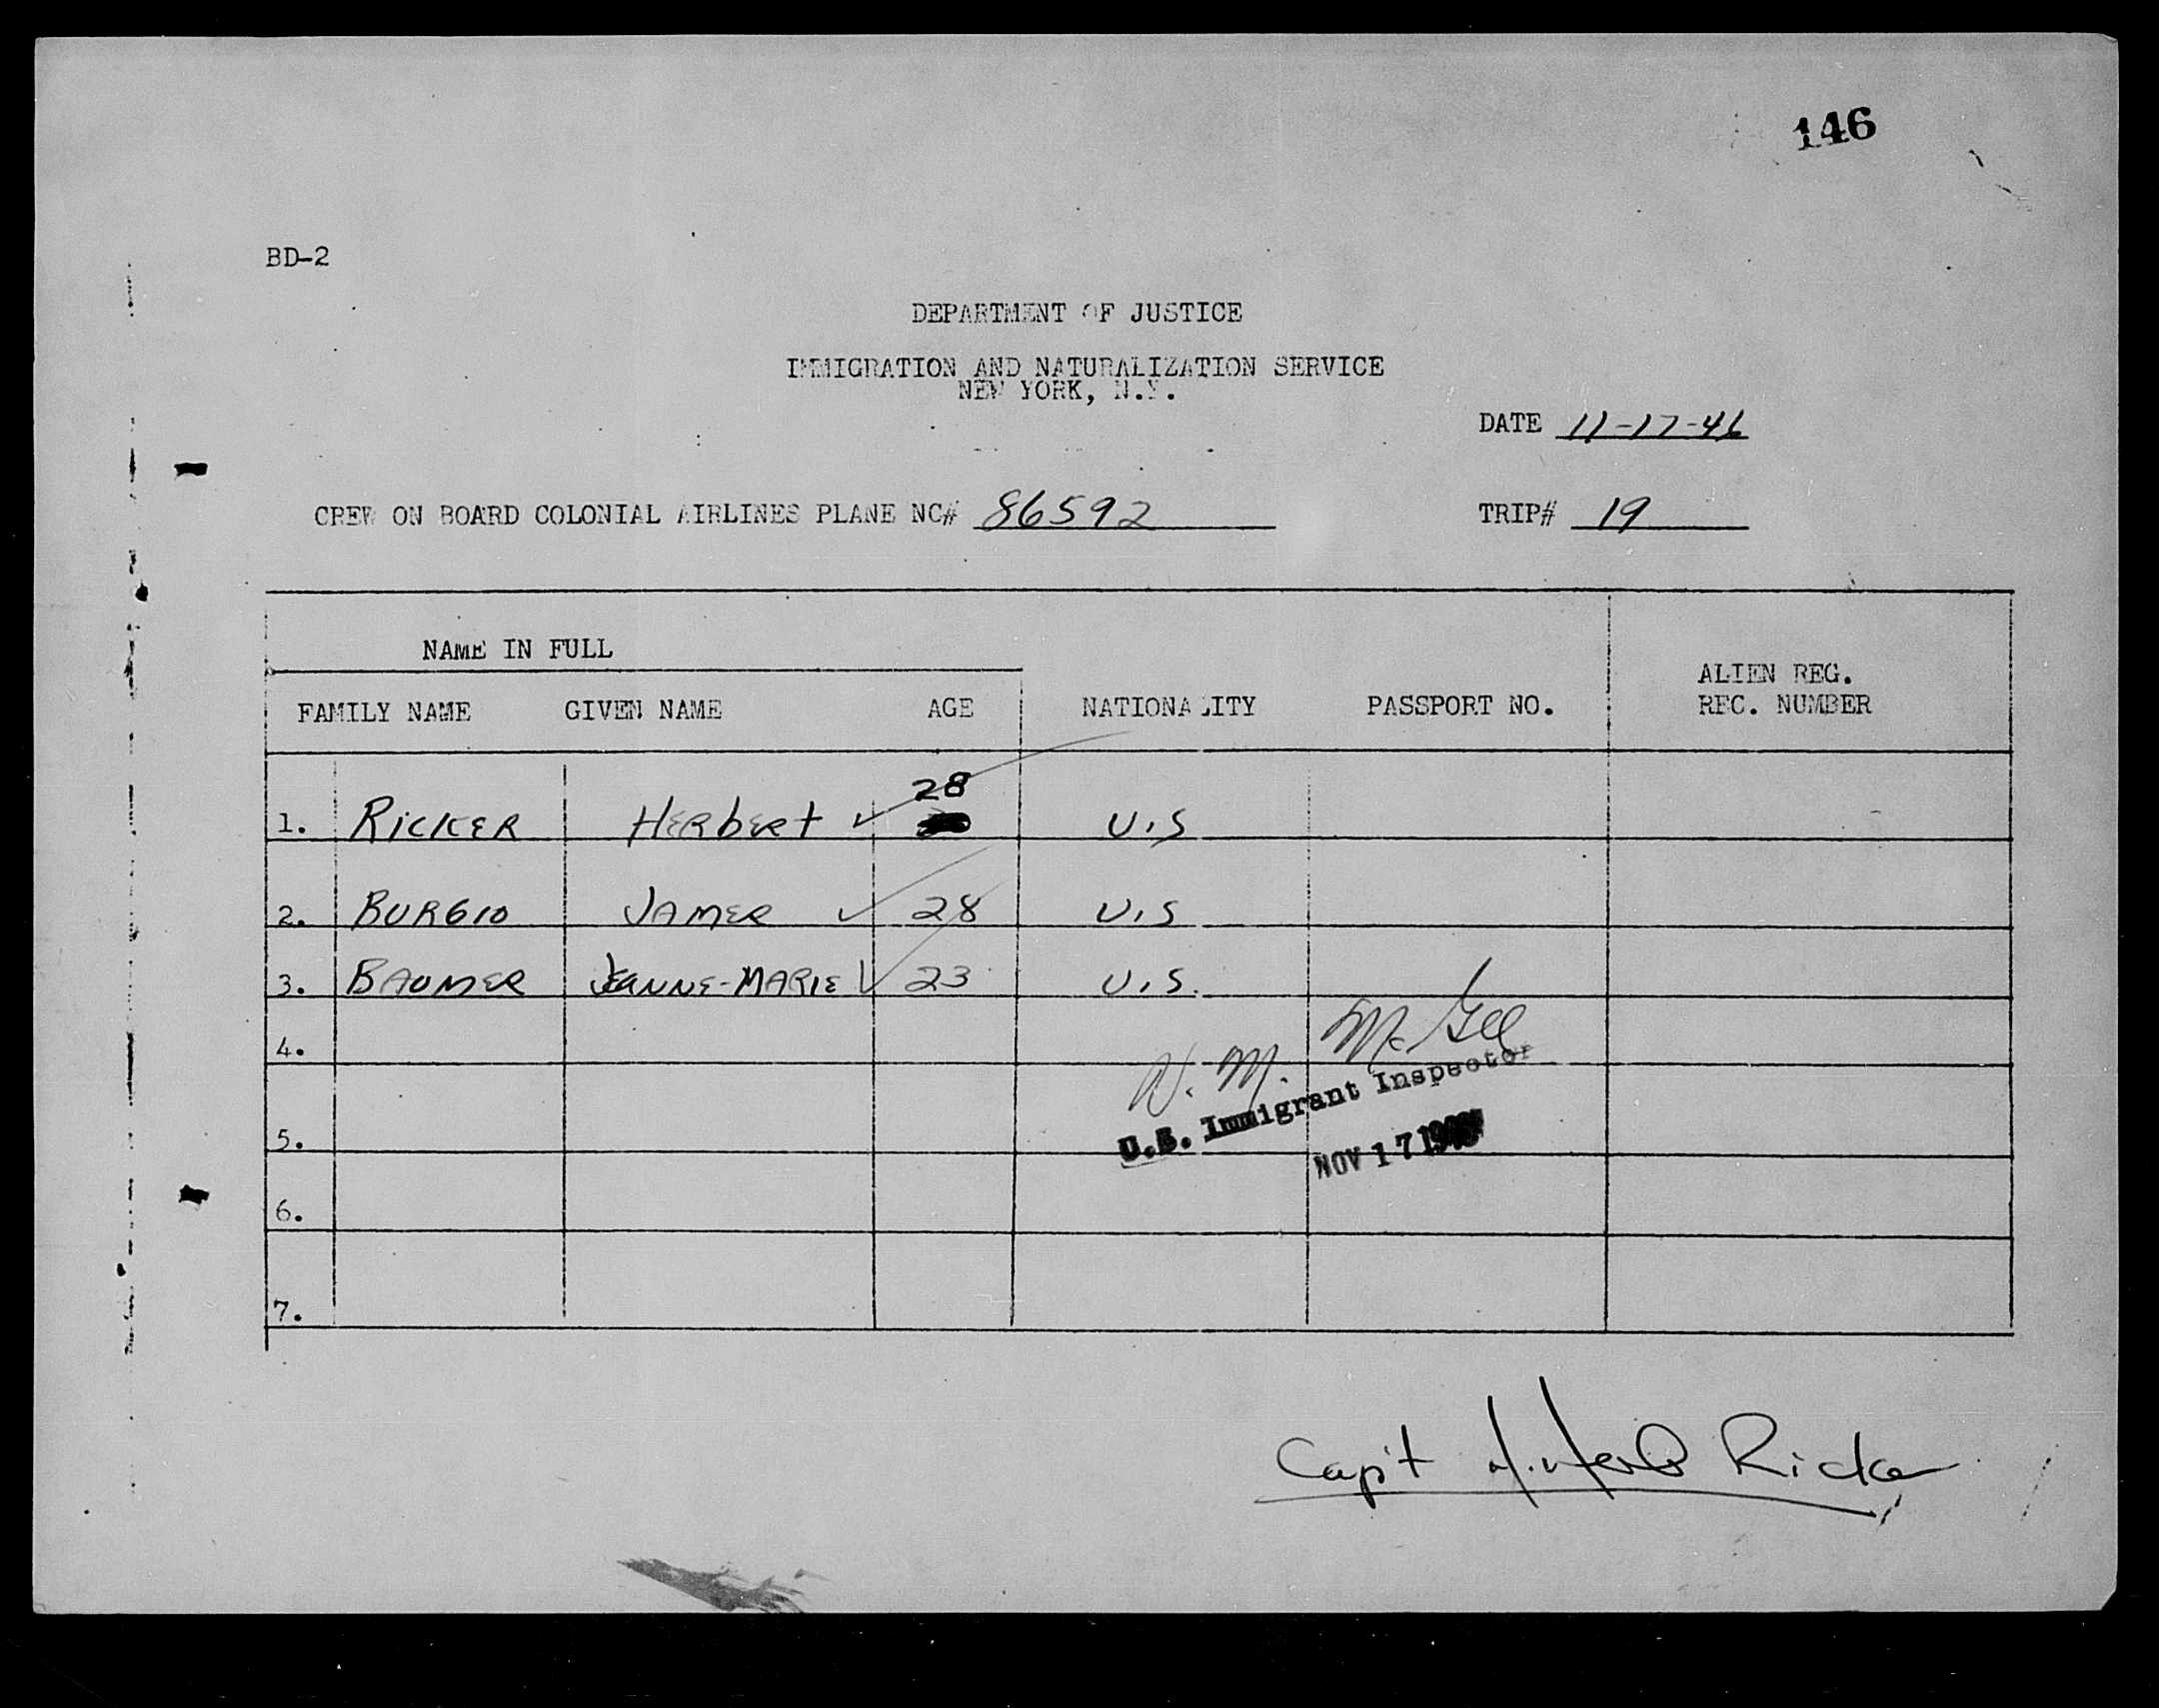 146
BD-2
DEPARTMENT OF JUSTICE
IMMIGRATION AND NATURALIZATION SERVICE
NEW YORK, N.Y.
DATE 11-17-46
CREW ON BOARD COLONIAL AIRLINES PLANE NC# 86592 TRIP# 19
NAME IN FULL
FAMILY NAME GIVEN NAME AGE NATIONALITY PASSPORT NO. ALIEN REG. REC. NUMBER
28
1. RICKER HERBERT ✓ U.S
2. BURGIO JAMES ✓ 28 U.S
3. BAUMER JEANNE-MARIE ✓ 23 U.S.
4.
5.
6.
7.
M. McGee
U.S. Immigrant Inspector
NOV 17
Capt H. Herb Ricker